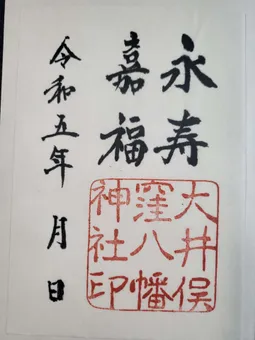 永寿
嘉福
令和五年 月 日
大井俣
窪八幡
神社印